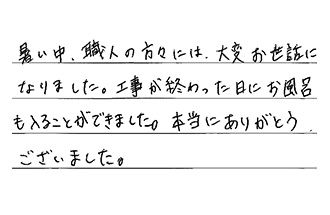 暑い中、職人の方々には、大変お世話に
なりました。工事が終わった日にお風呂
も入ることができました。本当にありがとう
ございました。